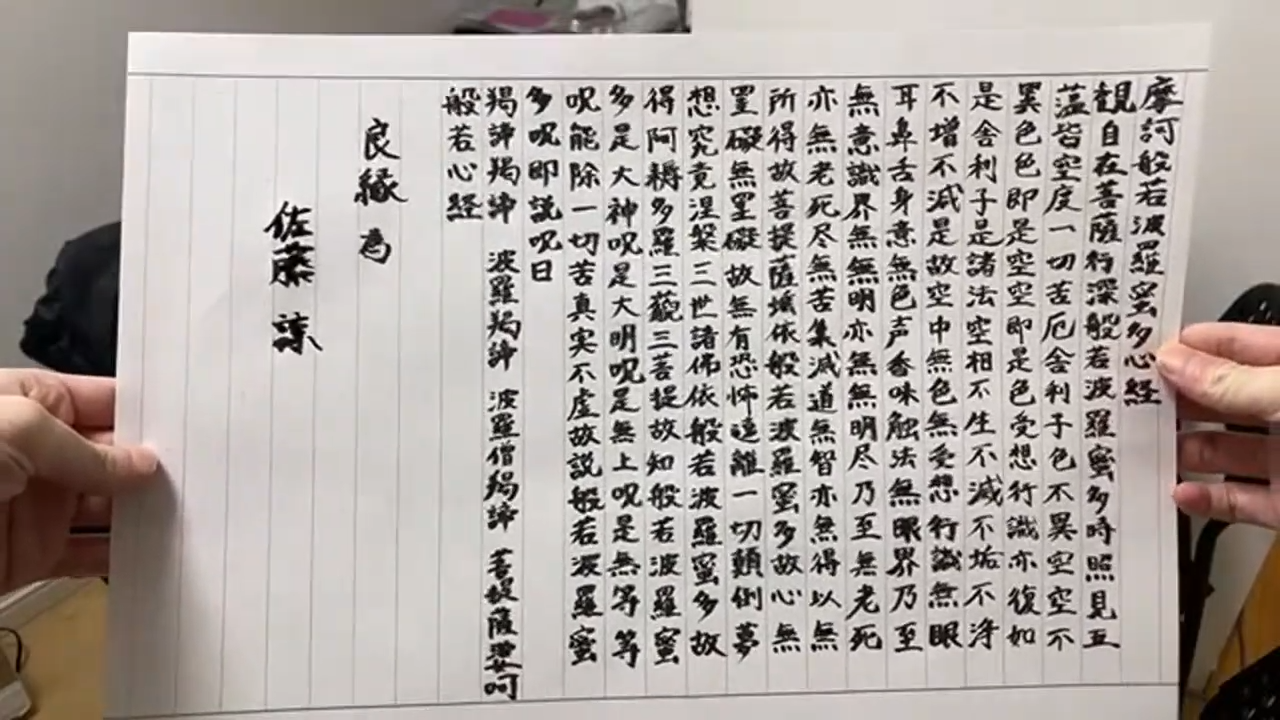 摩訶般若波羅蜜多心経
観自在菩薩行深般若波羅蜜多時照見五
蘊皆空度一切苦厄舎利子色不異空空不
異色色即是空空即是色受想行識亦復如
是舎利子是諸法空相不生不滅不垢不浄
不増不減是故空中無色無受想行識無眼
耳鼻舌身意無色声香味触法無眼界乃至
無意識界無無明亦無無明尽乃至無老死
亦無老死尽無苦集滅道無智亦無得以無
所得故菩提薩埵依般若波羅蜜多故心無
罣礙無罣礙故無有恐怖遠離一切顛倒夢
想究竟涅槃三世諸佛依般若波羅蜜多故
得阿耨多羅三藐三菩提故知般若波羅蜜
多是大神呪是大明呪是無上呪是無等等
呪能除一切苦真実不虚故説般若波羅蜜
多呪即説呪曰
羯諦羯諦 波羅羯諦 波羅僧羯諦 菩提薩婆呵
般若心経
良縁 為
佐藤 諒